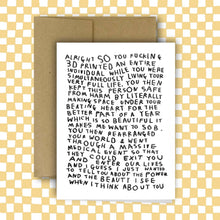 ALRIGHT SO YOU FUCKEN
3D PRINTED AN ENTIRE
INDIVIDUAL WHILE YOU WERE
SIMULTANEOUSLY LIVING YOUR
VERY FULL LIFE, YOU THEN
KEPT THIS PERSON SAFE
FROM HARM BY LITERALLY
MAKING SPACE UNDER YOUR
BEATING HEART FOR THE
BETTER PART OF A YEAR
WHICH IS SO BEAUTIFUL IT
MAKES ME WANT TO SOB.
YOU THEN REARRANGED
YOUR WORLD & WENT
THROUGH A MASSIVE
MEDICAL EVENT SO THAT
THEY COULD EXIT YOU
AND ENTER OUR LIVES
AND I GUESS I JUST WANTED
TO TELL YOU ABOUT THE POWER
AND THE BEAUTY I SEE
WHEN I THINK ABOUT YOU